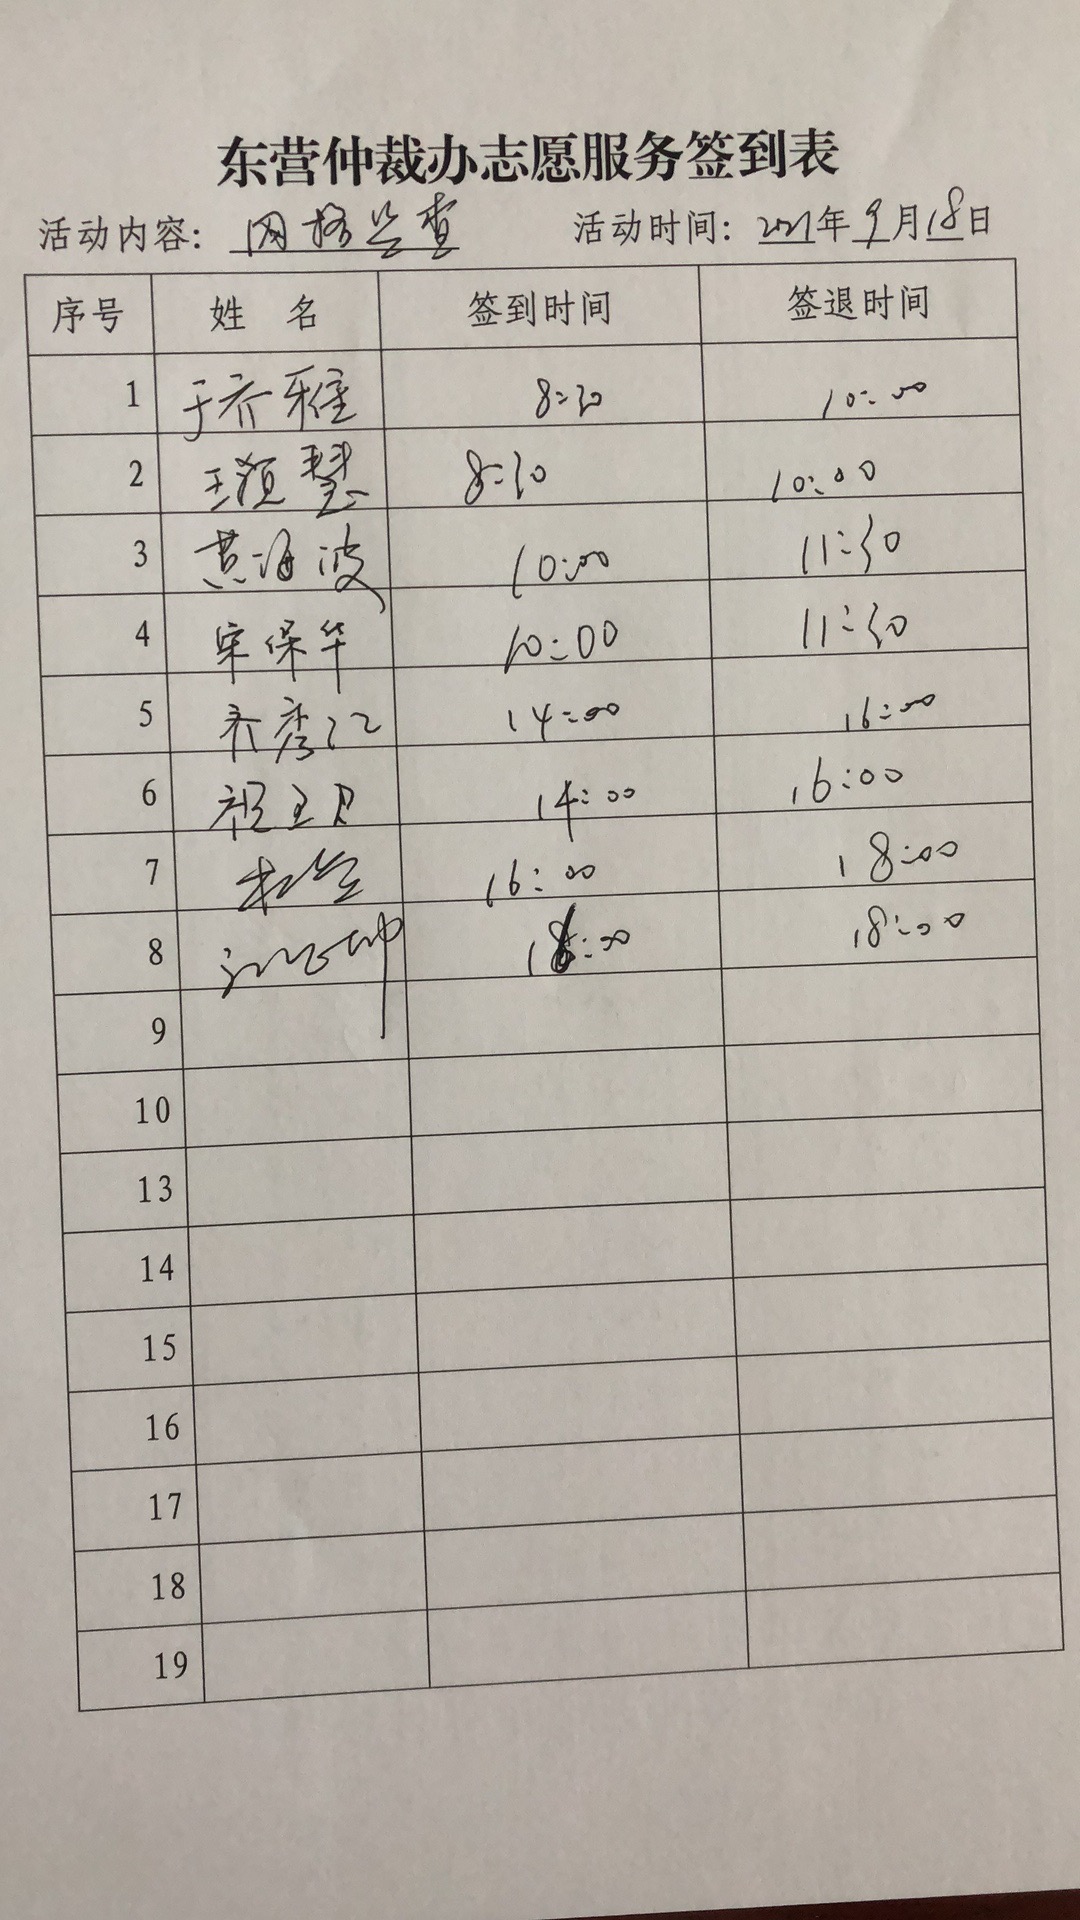 东营仲裁办志愿服务签到表
活动内容: 网格巡查 活动时间: 2021年9月18日
序号 姓 名 签到时间 签退时间
1 于乔雅 8:30 10:00
2 王颖慧 8:30 10:00
3 黄海波 10:00 11:30
4 宋保华 10:00 11:30
5 乔秀江 14:00 16:00
6 14:00 16:00
7 16:00 18:00
8 16:00 18:00
9
10
13
14
15
16
17
18
19